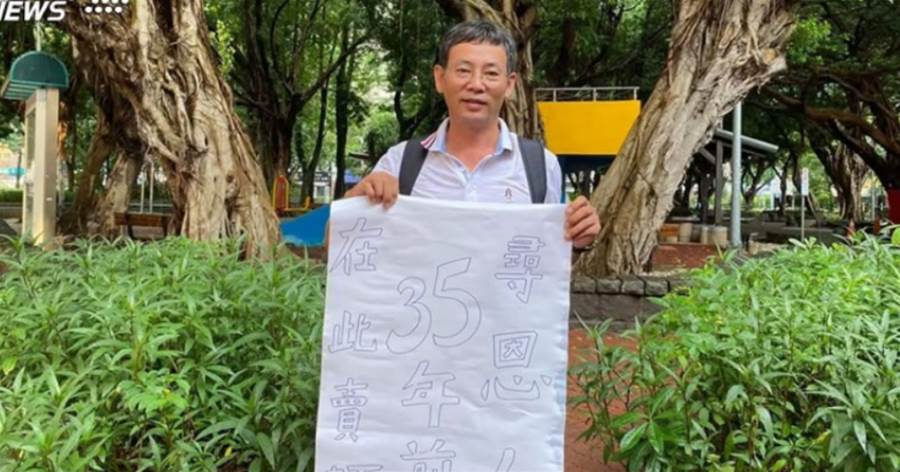 NEWS
尋恩人
35年前
在此賣